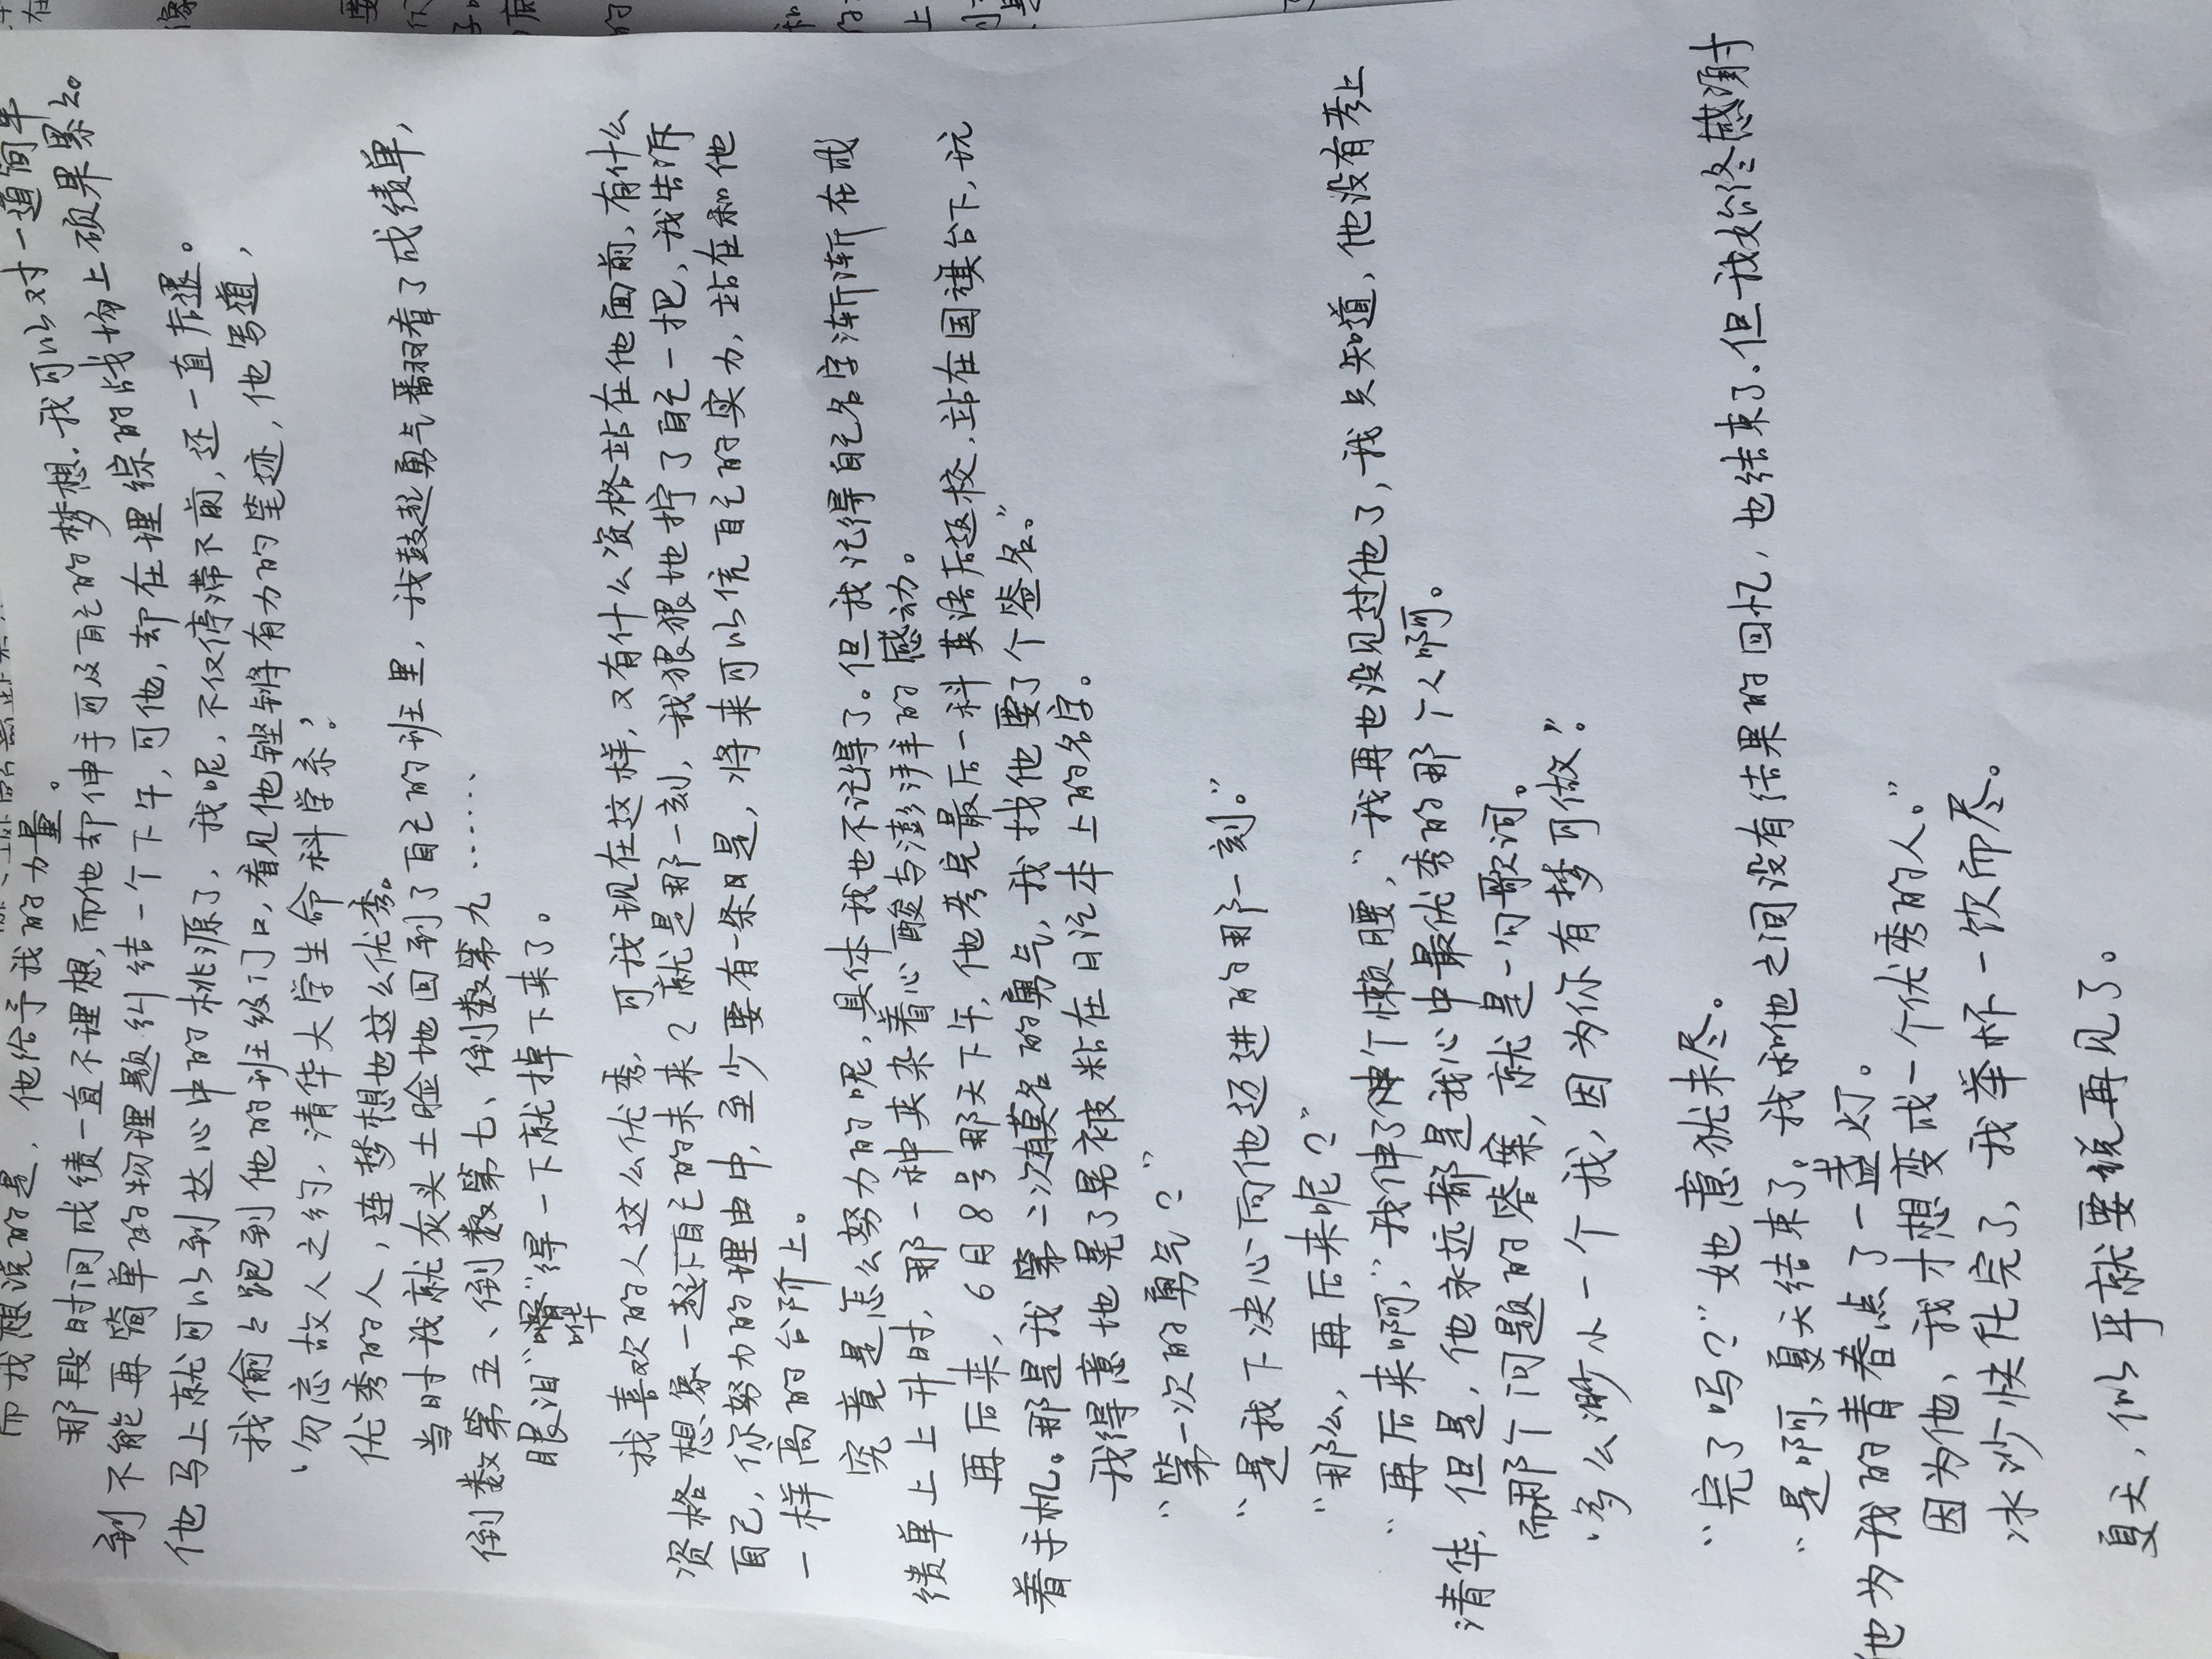 而我想说的是，他给予我的力量。
那段时间成绩一直不理想，而他却伸手可及自己的梦想．我可以对一道简单
到不能再简单的物理题纠结一个下午，可他，却在理综的战场上硕果累累。
他马上就可以到达心中的桃源了，我呢，不仅停滞不前，还一直后退。
我偷偷跑到他的班级门口，看见他铿锵有力的笔迹，他写道，
‘勿忘故人之约，清华大学生命科学系’
优秀的人，连梦想也这么优秀。
当时我就灰头土脸地回到了自己的班里，我鼓起勇气翻看了成绩单，
倒数第五、倒数第七、倒数第九……
眼泪“哗”得一下就掉下来了。
我喜欢的人这么优秀，可我现在这样，又有什么资格站在他面前，有什么
资格想象一遍下自己的未来？就是那一刻，我狠狠地拧了自己一把，我告诉
自己，你努力的理由中，至少要有一条是，将来可以凭自己的实力，站在和他
一样高的台阶上。
究竟是怎么努力的呢，具体我也不记得了。但我记得自己名字渐渐在成
绩单上上升时，那一种夹杂着心酸与澎湃的感动。
再后来，6月8号那天下午，他考完最后一科英语后返校，站在国旗台下，玩
着手机。那是我第二次有莫名的勇气，我找他要了个签名。”
我得意地晃了晃被粘在日记本上的名字。
“第一次的勇气？”
“是我下决心向他迈进的那一刻。”
“那么，再后来呢？”
“再后来啊，”我伸了个懒腰，“我再也没见过他了，我只知道，他没有考上
清华，但是，他永远都是我心中最优秀的那个人啊。
而那个问题的答案，就是一句歌词。
‘多么渺小一个我，因为你有梦可做’。”
“完了吗？”她意犹未尽。
“是啊，夏天结束了。我和他之间没有结果的回忆，也结束了．但我始终感谢
他为我的青春点了一盏灯。
因为他，我才想变成一个优秀的人。”
冰沙快化完了，我举杯一饮而尽。
夏天，似乎就要说再见了。